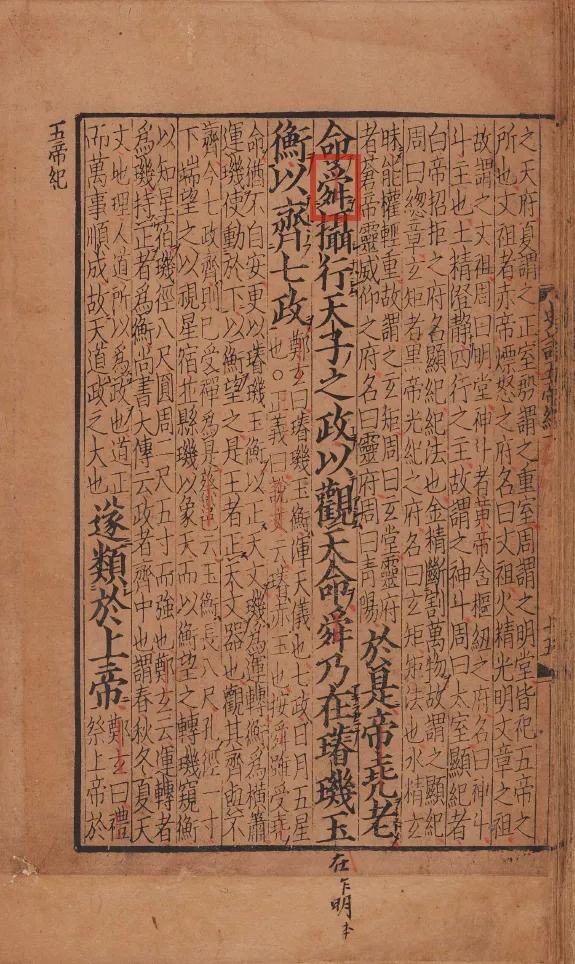 史記五帝紀一
十五
之天府夏謂之正室殷謂之重室周謂之明堂皆祀五帝之
所也文祖者赤帝熛怒之府名曰文祖火精光明文章之祖
故謂之文祖周曰明堂神斗者黃帝含樞紐之府名曰神斗
斗主也土精澄静四行之主故謂之神斗周曰太室顯紀者
白帝招拒之府名顯紀紀法也金精斷割萬物故謂之顯紀
周曰總章玄矩者黑帝光紀之府名曰玄矩矩法也水精玄
昧能權輕重故謂之玄矩周曰玄堂靈府
者蒼帝靈威仰之府名曰靈府周曰青陽
於是帝堯老
命舜攝行天子之政以觀天命舜乃在璿璣玉
衡以齊七政
鄭玄曰璿璣玉衡渾天儀也七政日月五星
也○正義曰說文云璿赤玉也按舜雖受堯
命猶不自安更以璿璣玉衡以正天文璣為運轉衡為橫簫
運璣使動於下以衡望之是王者正天文器也觀其齊與不
齊今七政齊則已受禪為是蔡邕云玉衡長八尺孔徑一寸
下端望之以視星宿並縣璣以象天而以衡望之轉璣窺衡
以知星宿璣徑八尺圓周二尺五寸而強也鄭玄云運轉者
為璣持正者為衡尚書大傳云政者齊中也謂春秋冬夏天
文地理人道所以為政也道正
而萬事順成故天道政之大也
遂類於上帝
鄭玄曰禮
祭上帝於
五帝紀
在乍明本